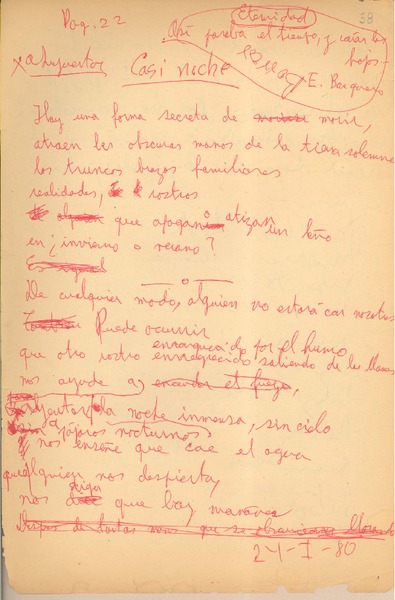 Pag. 22
Eternidad
38
Así pasaba el tiempo, y caían las hojas
E. Barquero
x a Ahuyentar
Casi noche
Hay una forma secreta de morir,
atraen las obscuras manos de la tierra solemne
los truncos brazos familiares
realidades, rostros
que apagan o atizan un leño
en ¿invierno o verano?
De cualquier modo, alguien no estará con nosotros
Puede ocurrir
que otro rostro enrarecido por el humo
enrojecido saliendo de las llamas
nos ayude a encender el fuego,
ahuyentar la noche inmensa, sin cielo
a pájaros nocturnos
y nos enseñe que cae el agua
que alguien nos despierta,
nos diga que hay mañana
Después de tantas
24-I-80